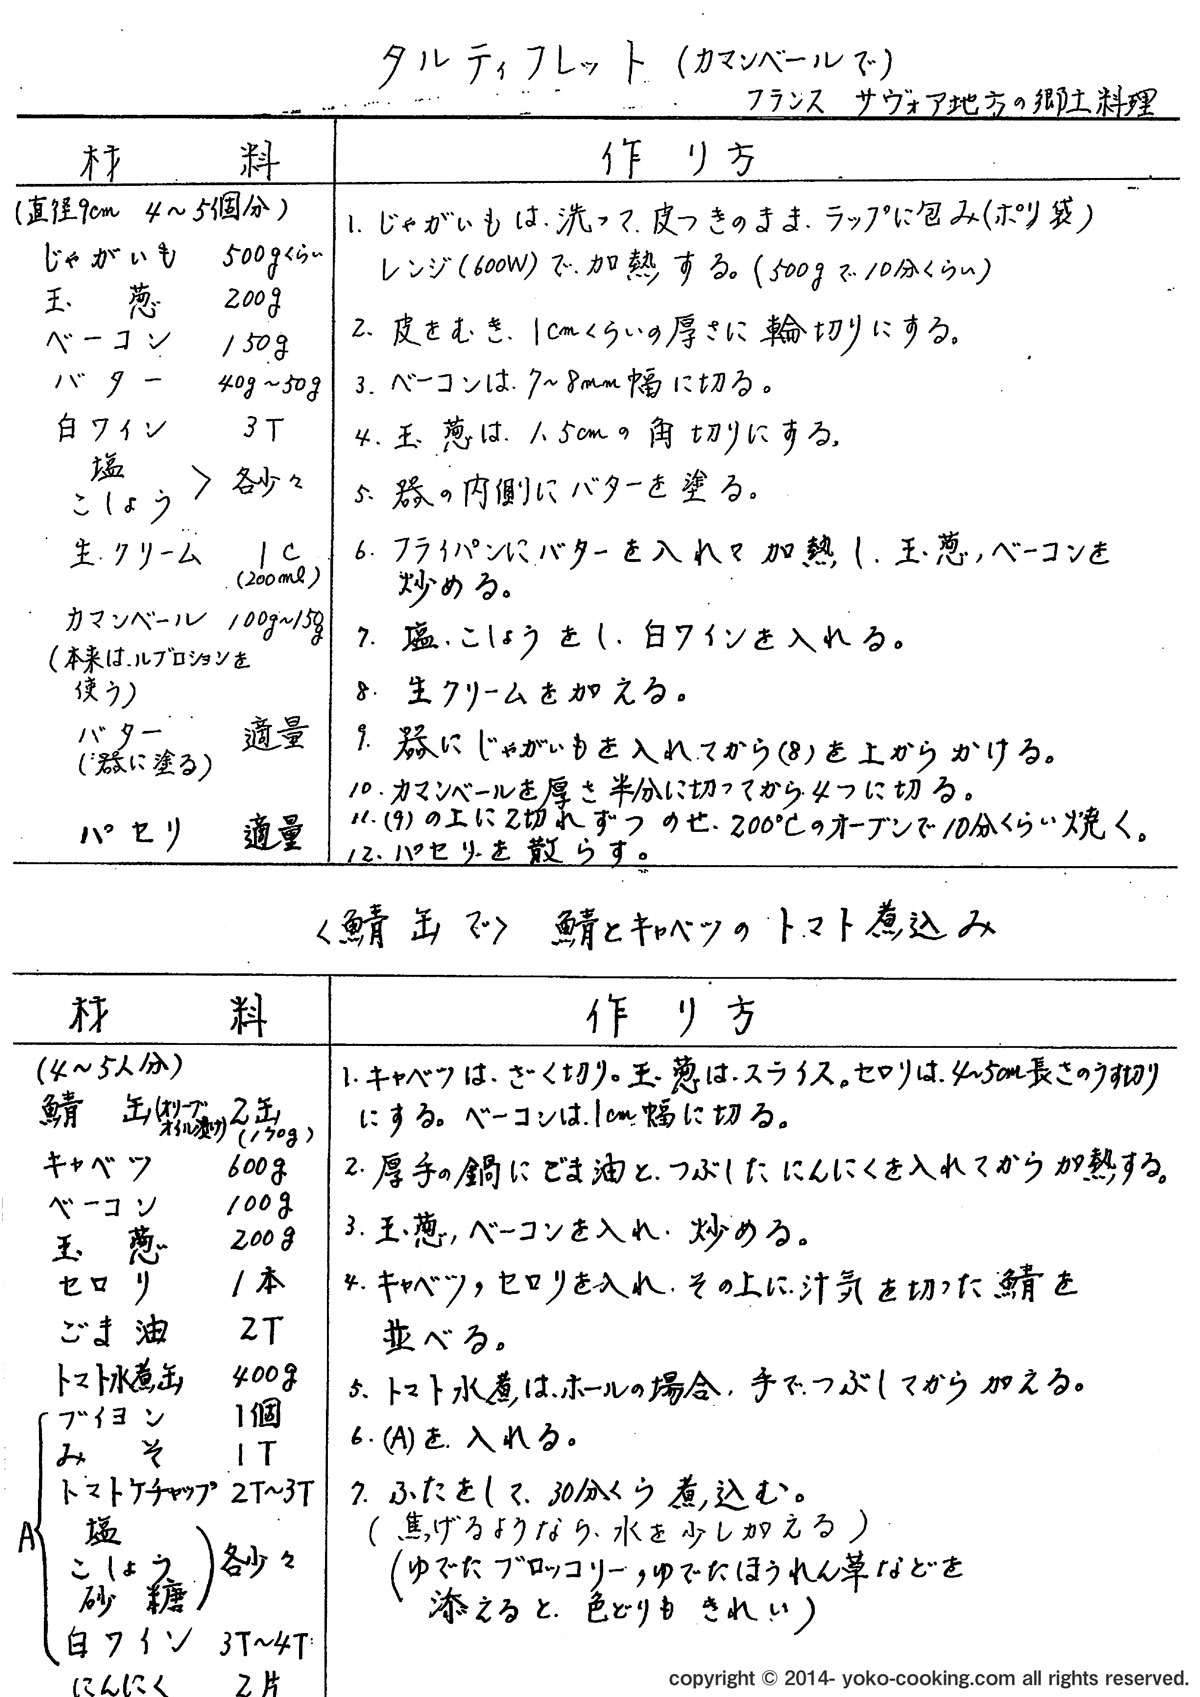 タルティフレット (カマンベールで)
フランス サヴォア地方の郷土料理
材 料
作 り 方
(直径9cm 4～5個分)
じゃがいも 500gくらい
玉 葱 200g
ベーコン 150g
バター 40g～50g
白ワイン 3T
塩
こしょう > 各少々
生クリーム 1C
(200ml)
カマンベール 100g～150g
(本来は、ルブロションを
使う)
バター 適量
(器に塗る)
パセリ 適量
1. じゃがいもは、洗って、皮つきのまま、ラップに包み(ポリ袋)
レンジ(600W)で、加熱する。(500gで10分くらい)
2. 皮をむき、1cmくらいの厚さに輪切りにする。
3. ベーコンは、7～8mm幅に切る。
4. 玉葱は、1.5cmの角切りにする。
5. 器の内側にバターを塗る。
6. フライパンにバターを入れて加熱し、玉葱,ベーコンを
炒める。
7. 塩、こしょうをし、白ワインを入れる。
8. 生クリームを加える。
9. 器にじゃがいもを入れてから(8)を上からかける。
10. カマンベールを厚さ半分に切ってから、4つに切る。
11. (9)の上に2切れずつのせ、200℃のオーブンで10分くらい焼く。
12. パセリを散らす。
<鯖缶で> 鯖とキャベツのトマト煮込み
材 料
作 り 方
(4～5人分)
鯖 缶(オリーブオイル漬け) 2缶
キャベツ 600g
ベーコン 100g
玉 葱 200g
セロリ 1本
ごま油 2T
トマト水煮缶 400g
A
ブイヨン 1個
みそ 1T
トマトケチャップ 2T～3T
塩
こしょう
砂糖 ) 各少々
白ワイン 3T～4T
にんにく 2片
1. キャベツは、ざく切り。玉葱は、スライス。セロリは、4～5cm長さのうす切り
にする。ベーコンは、1cm幅に切る。
2. 厚手の鍋にごま油と、つぶしたにんにくを入れてから加熱する。
3. 玉葱,ベーコンを入れ、炒める。
4. キャベツ,セロリを入れ、その上に、汁気を切った鯖を
並べる。
5. トマト水煮は、ホールの場合、手で、つぶしてから加える。
6. (A)を入れる。
7. ふたをして、30分くらう煮込む。
(焦げるようなら、水を少し加える)
(ゆでたブロッコリー,ゆでたほうれん草などを
添えると、色どりもきれい)
copyright © 2014- yoko-cooking.com all rights reserved.